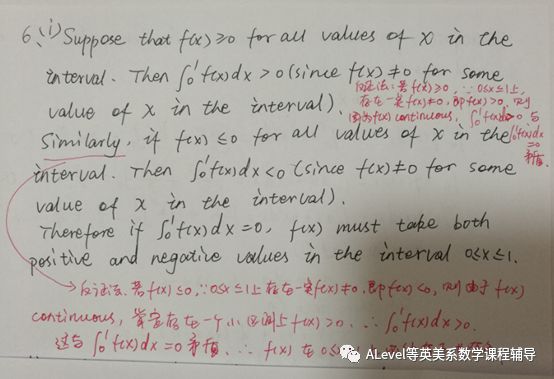 6、(i) Suppose that f(x)≥0 for all values of x in the
interval. Then ∫₀¹f(x)dx > 0 (since f(x) ≠ 0 for some
value of x in the interval).
反证法: 若f(x)≥0, ∵ 0≤x≤1上,
存在一定f(x)≠0, 即f(x)>0, 则
因为f(x) continuous, ∫₀¹f(x)dx>0 与
∫₀¹f(x)dx
=0
矛盾.
Similarly, if f(x) ≤ 0 for all values of x in the
interval. Then ∫₀¹f(x)dx < 0 (since f(x)≠0 for some
value of x in the interval).
Therefore if ∫₀¹f(x)dx=0, f(x) must take both
positive and negative values in the interval 0≤x≤1.
反证法. 若f(x)≤0, ∵ 0≤x≤1上存在一定f(x)≠0. 即f(x)<0, 则由于f(x)
continuous, 肯定存在一个小区间上f(x)>0, ∴ ∫₀¹f(x)dx>0.
这与∫₀¹f(x)dx=0矛盾, ∴ f(x) 在0≤
ALevel等英美系数学课程辅导